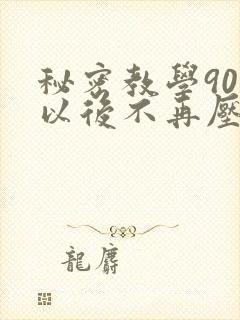 秘密教學90
以後不再壓
龍麝